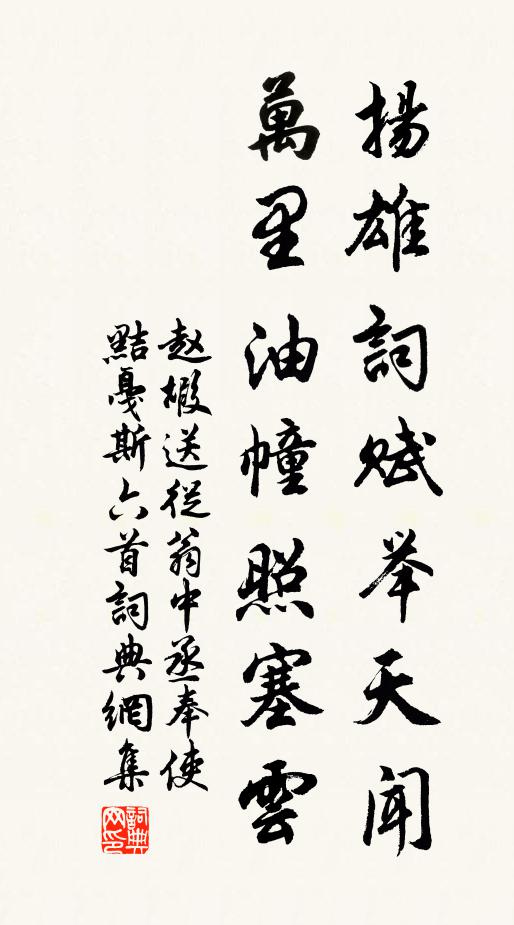 揚雄詞賦举天聞
萬里油幢照塞雲
赵嘏送從翁中丞奉使
黠戛斯六首詞典網集
詞典网印